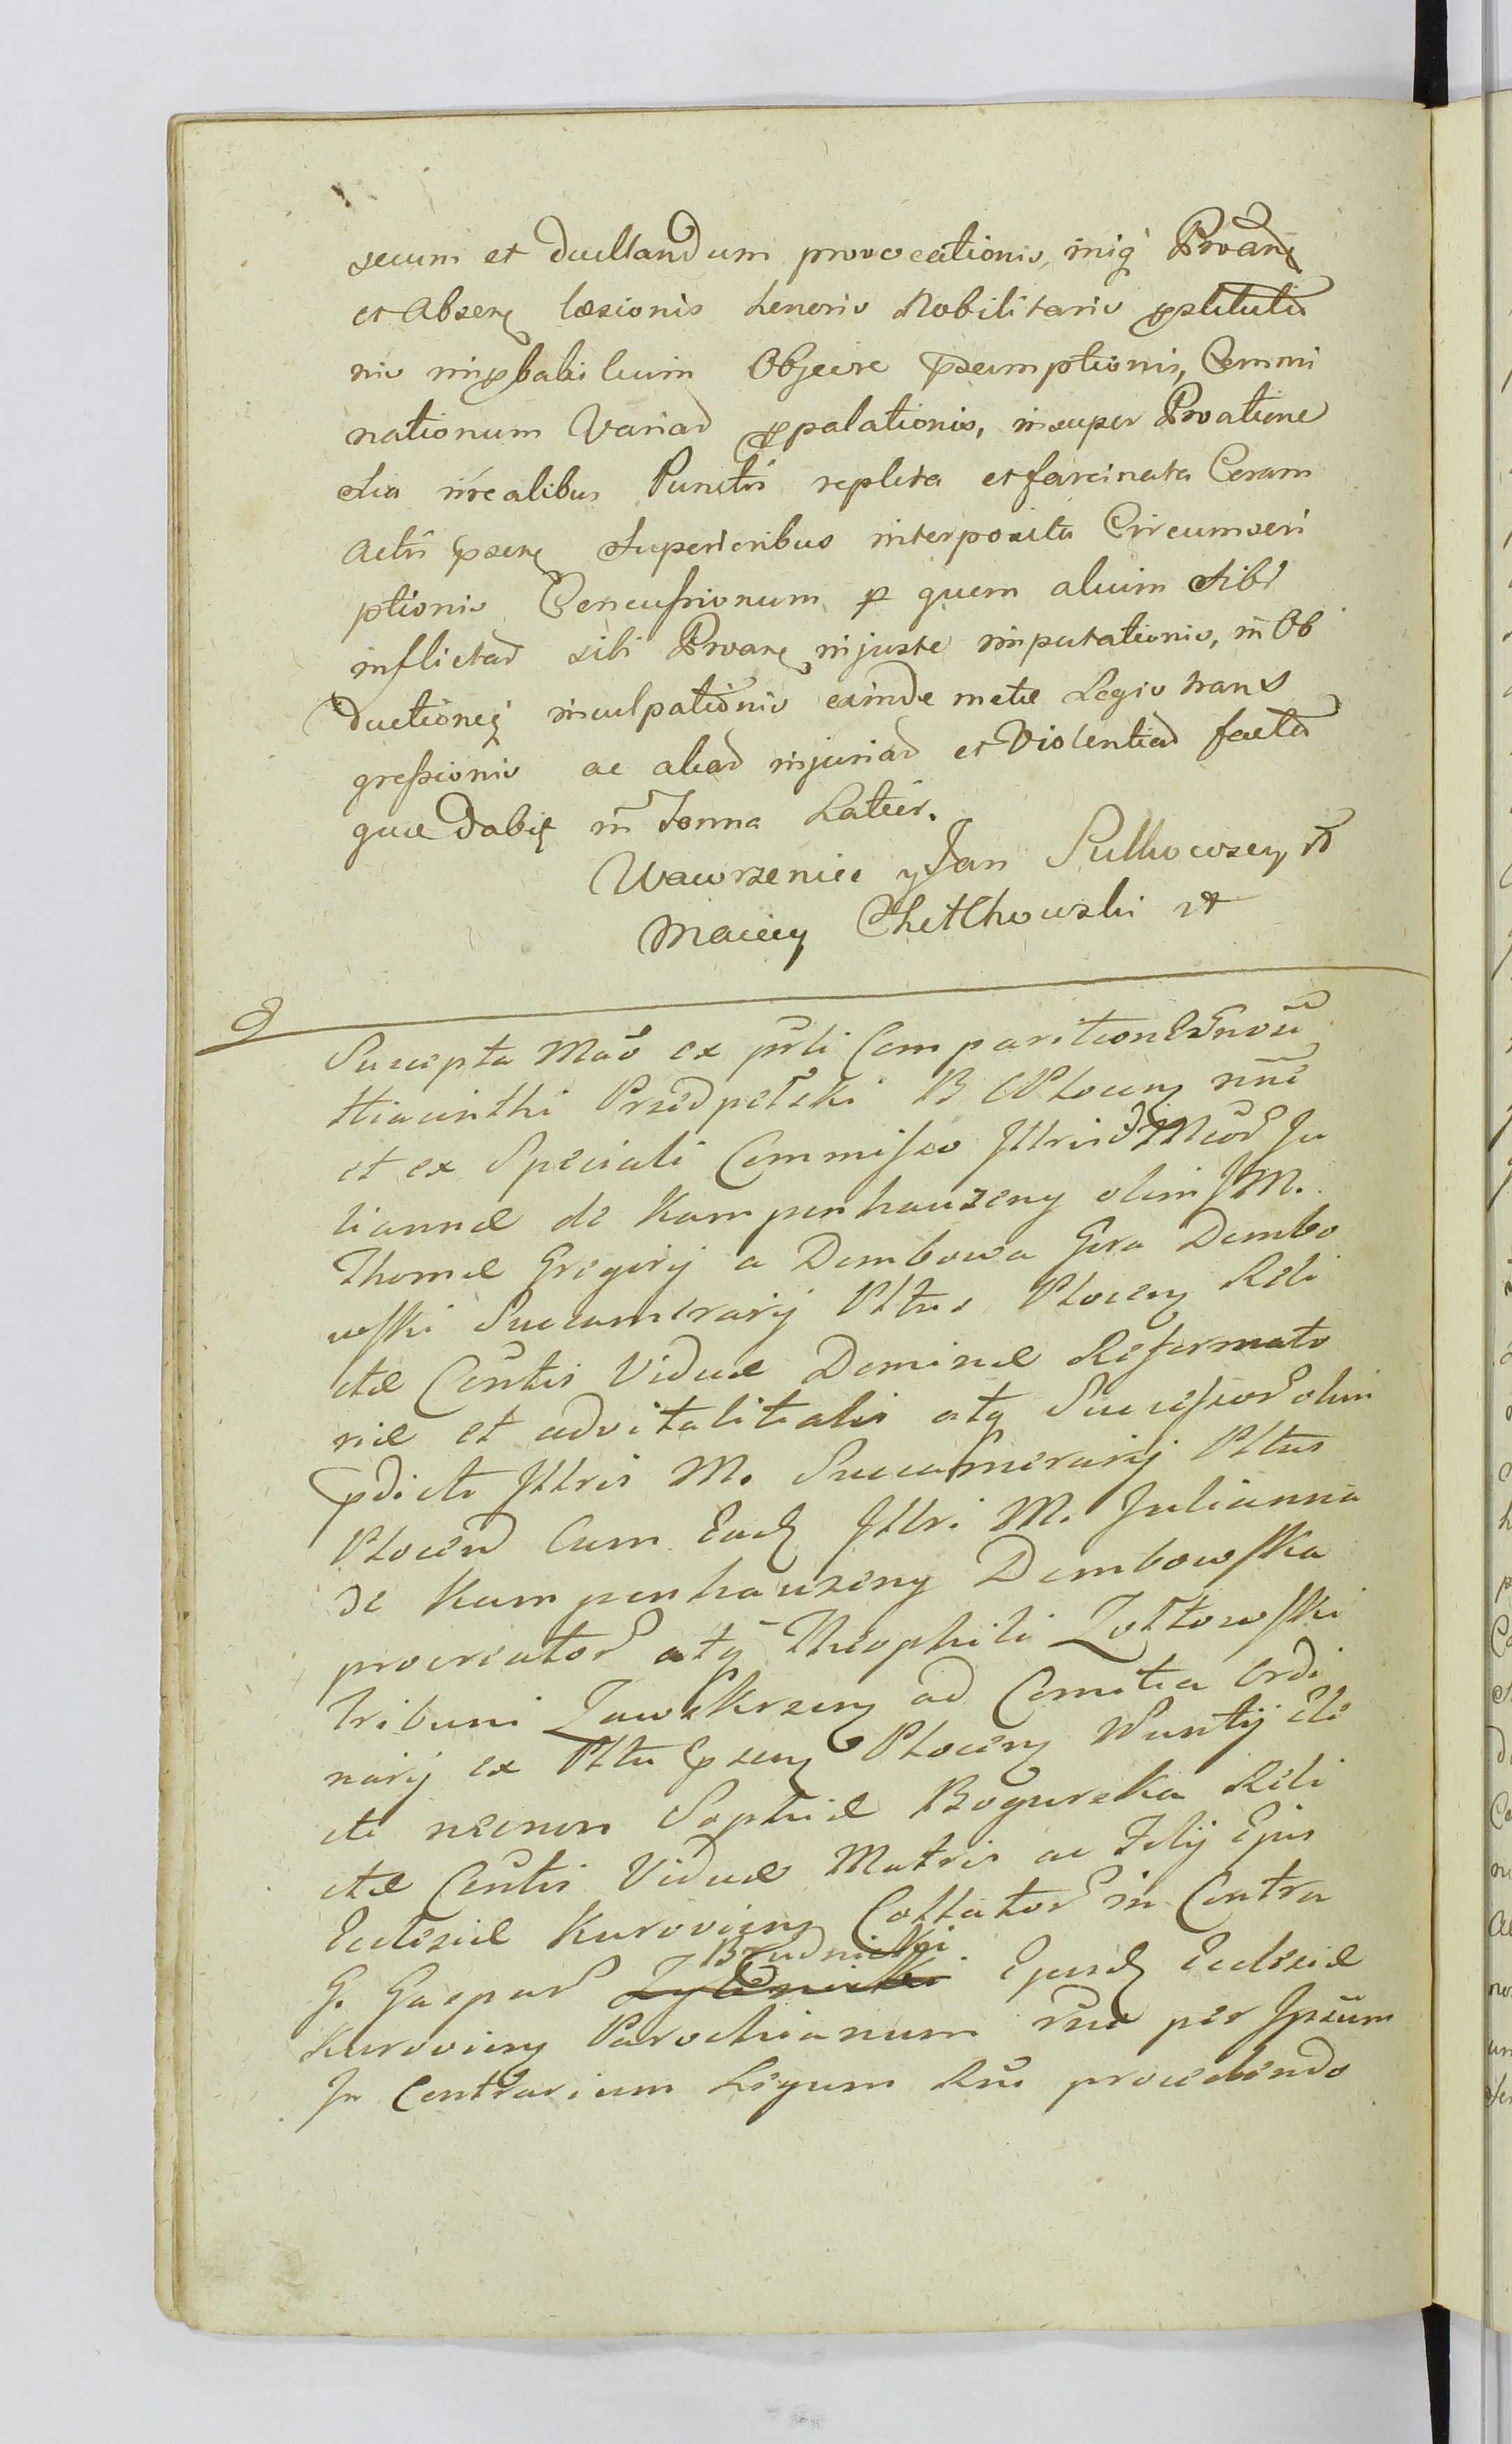 secum et duellandum provocationis, iniq Protãne
et Absenę læsionis honoris Nobilitaris pstitutio
nis improbabilium Objecire psumptionis, Commi
nationum Varias ppalationis, insuper Protatione
Sua nrealibus Punctis repleta et farcinata Coram
Actis psenę Superioribus interposita Circumscri
ptionis Concussionum p quem alium sibi
inflictas sibi Protane injuste imputationis, in Ob
ductioneq inculpationis eximde metæ Legis trans
gressionis ac alias injurias et Violentias facta
que dabit in Termno Latius.
Wawrzeniec y Jan Sulkowscy
Maciey Chełchowski
Suscepta Mão ex psli Comparitione Gnosi
Hiacinthi Przedpełski B C Płocen nne
et ex Speciali Commisso Illris Mcæ Ju
liannæ de Kampenhauzeny olim J M.
Thomæ Gregorij a Dembowa Gora Dembo
wski Succamerarij Pltus Plocen Reli
ctæ Consortis Viduæ Dominæ Reformato
riæ et advitalitalis atq Successor olim
pdicti Illris M. Succamerarij Pltus
Plocen Cum Eadę Illri M. Julianna
de Kampenhauzeny Dembowska
procreator atq Theophili Zołtowski
Tribuni Zawskrzen ad Comitia Ordi
narij ex Pltu psen Plocen Nuntij Ele
cti necnon Sophiæ Bogurska Reli
ctæ Consortis Viduæ Matris ac Filij Ejus
Ecclesiæ Kurovien Collator in Contra
Brudnicki
G. Gaspar Ejusdę Ecclesiæ
Kurovien Parochianum rne per Ipsum
In Contrarium Legum Rni procedendo